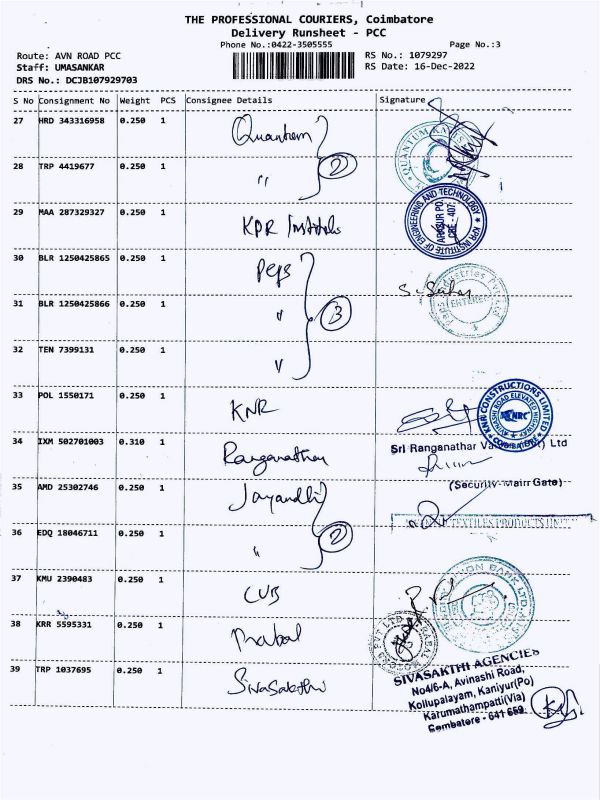 THE PROFESSIONAL COURIERS, Coimbatore
Delivery Runsheet - PCC
Phone No.:0422-3505555 Page No.:3
Route: AVN ROAD PCC RS No.: 1079297
Staff: UMASANKAR RS Date: 16-Dec-2022
DRS No.: DCJB107929703
S No Consignment No Weight PCS Consignee Details Signature
27 HRD 343316958 0.250 1 Quantum
QUANTUM
28 TRP 4419677 0.250 1 " 2
29 MAA 287329327 0.250 1 KPR Institute
KPR INSTITUTE OF ENGINEERING AND TECHNOLOGY
ARASUR PO.
CBE - 407.
30 BLR 1250425865 0.250 1 Peps
31 BLR 1250425866 0.250 1 " 3
ENTERED
32 TEN 7399131 0.250 1 "
33 POL 1550171 0.250 1 KNR
KNR CONSTRUCTIONS LIMITED
AVINASHI ROAD ELEVATED HIGHWAY
KNRC
34 IXM 502701003 0.310 1 Ranganathar
Sri Ranganathar Ltd
(Security-Main Gate)
35 AMD 25302746 0.250 1 Jayandhi
TEXTILES PRODUCTS UNIT
36 EDQ 18046711 0.250 1 " 2
37 KMU 2390483 0.250 1 CUB
UNION BANK LTD.
38 KRR 5595331 0.250 1 Prabal
39 TRP 1037695 0.250 1 Sivasakthi
SIVASAKTHI AGENCIES
No4/6-A, Avinashi Road,
Kollupalayam, Kaniyur(Po)
Karumathampatti(Via)
Coimbatore - 641 659